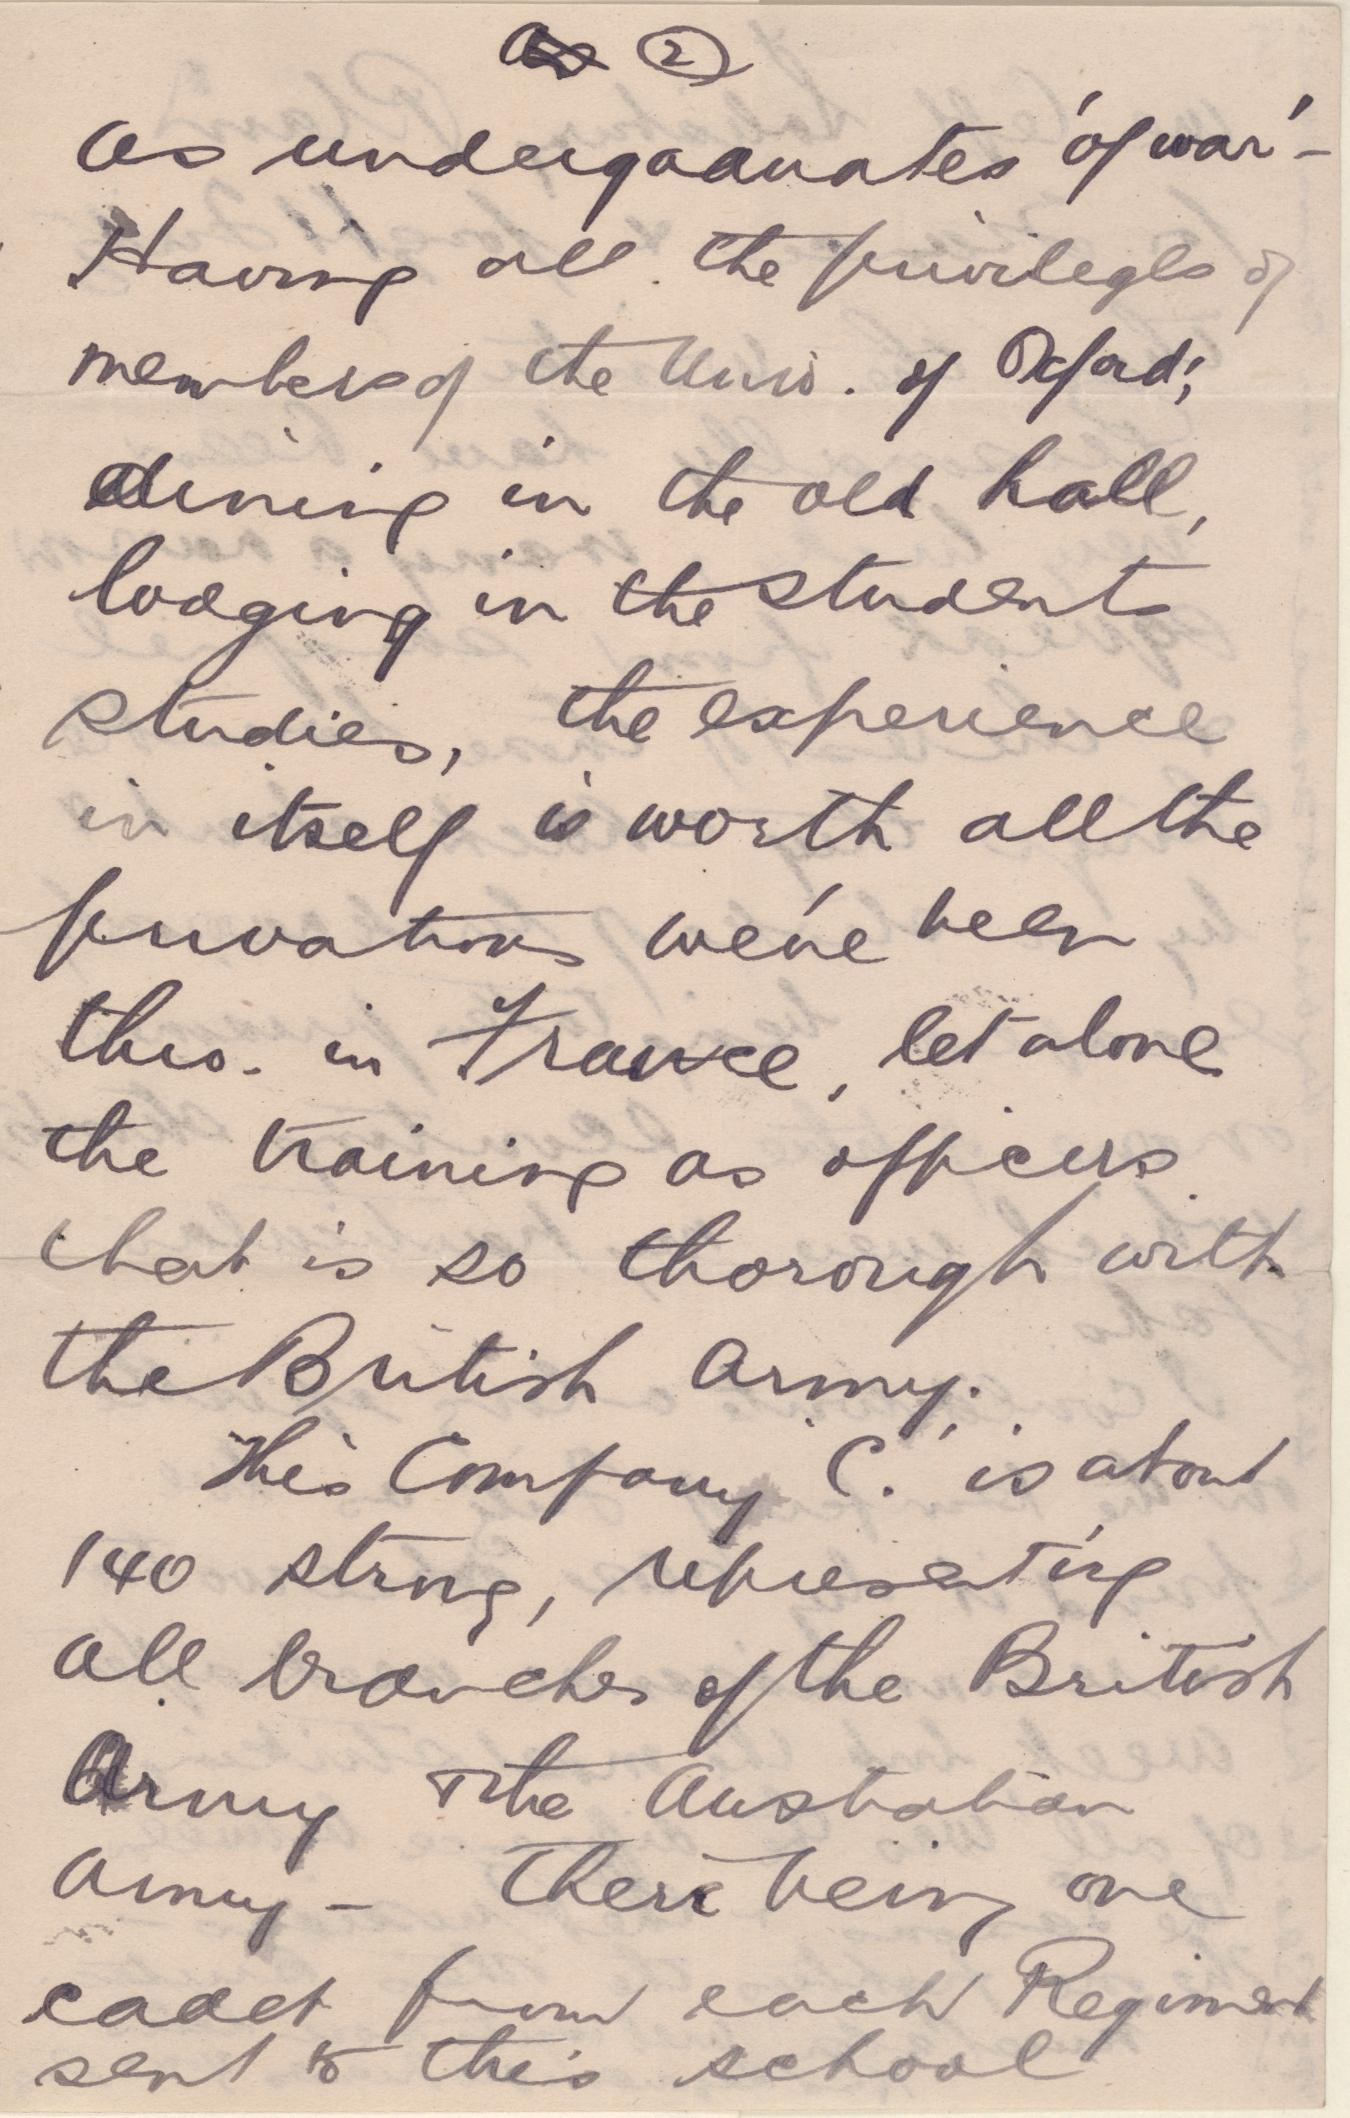 as 2
as undergaduates 'of war' -
Having all the privileges of
members of the Univ. of Oxford;
dining in the old hall,
lodging in the students
studies, the experience
in itself is worth all the
privations we've been
thro. in France, let alone
the training as officers
that is so thorough with
the British Army.
This Company 'C.' is about
140 strong, representing
all branches of the British
Army & the Australian
Army - there being one
cadet from each Regiment
sent to this school